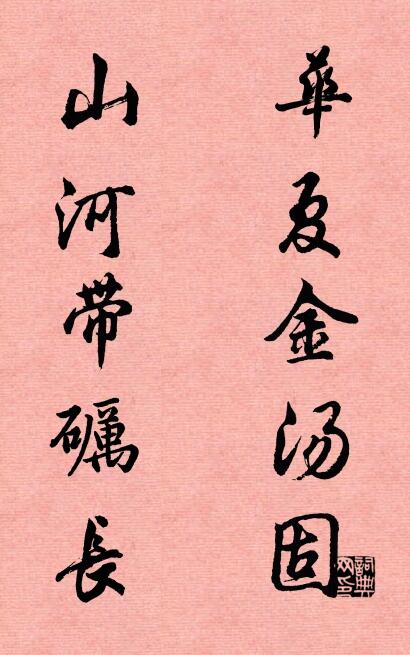 華夏金汤固
山河带礪長
詞典
网印